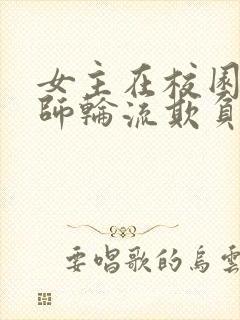 女主在校園
師輪流欺負
要唱歌的烏雲